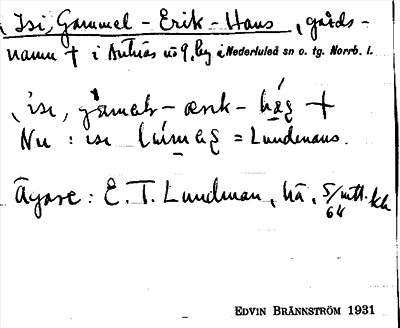 Isi, Gammel-Erik-Hans, gårds-
namn † i Antnäs nö 9, bg i Nederluleå sn o. tg. Norrb. l.
isi,
Nu: isi = Lundmans.
Ägare: E. T. Lundman, hä, 5/mtl.
64
EDVIN BRÄNNSTRÖM 1931